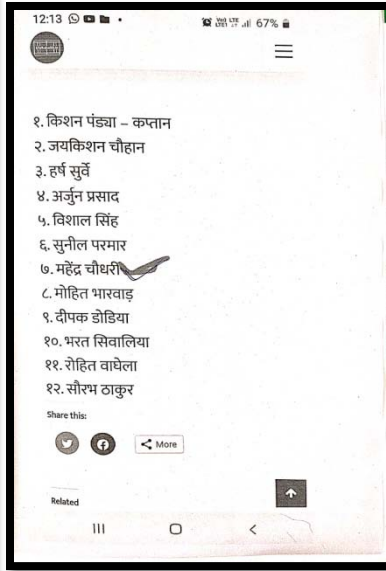 12:13
67%
१. किशन पंड्या – कप्तान
२. जयकिशन चौहान
३. हर्ष सुर्वे
४. अर्जुन प्रसाद
५. विशाल सिंह
६. सुनील परमार
७. महेंद्र चौधरी
८. मोहित भारवाड़
९. दीपक डोडिया
१०. भरत सिवालिया
११. रोहित वाघेला
१२. सौरभ ठाकुर
Share this:
More
Related